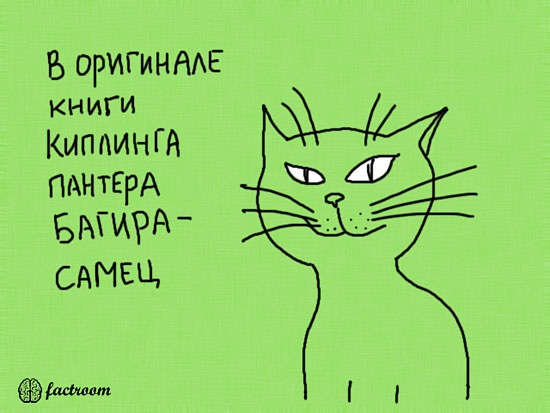 В ОРИГИНАЛЕ
КНИГИ
КИПЛИНГА
ПАНТЕРА
БАГИРА –
САМЕЦ
factroom